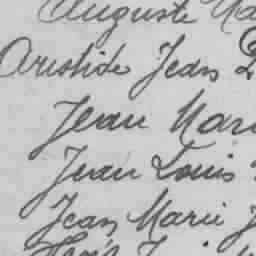 Auguste Ma
Aristide Jean
Jean Mari
Jean Louis
Jean Marie J